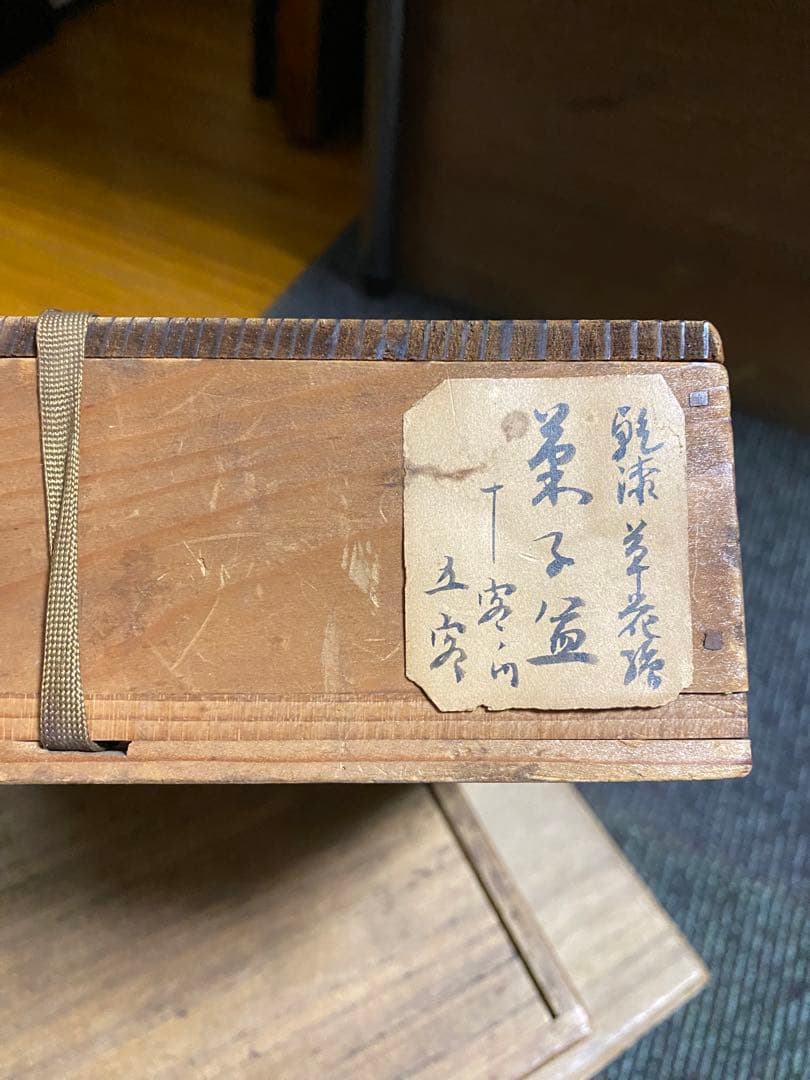 乾漆 草花繪
菓子盆
十客ノ内
五客